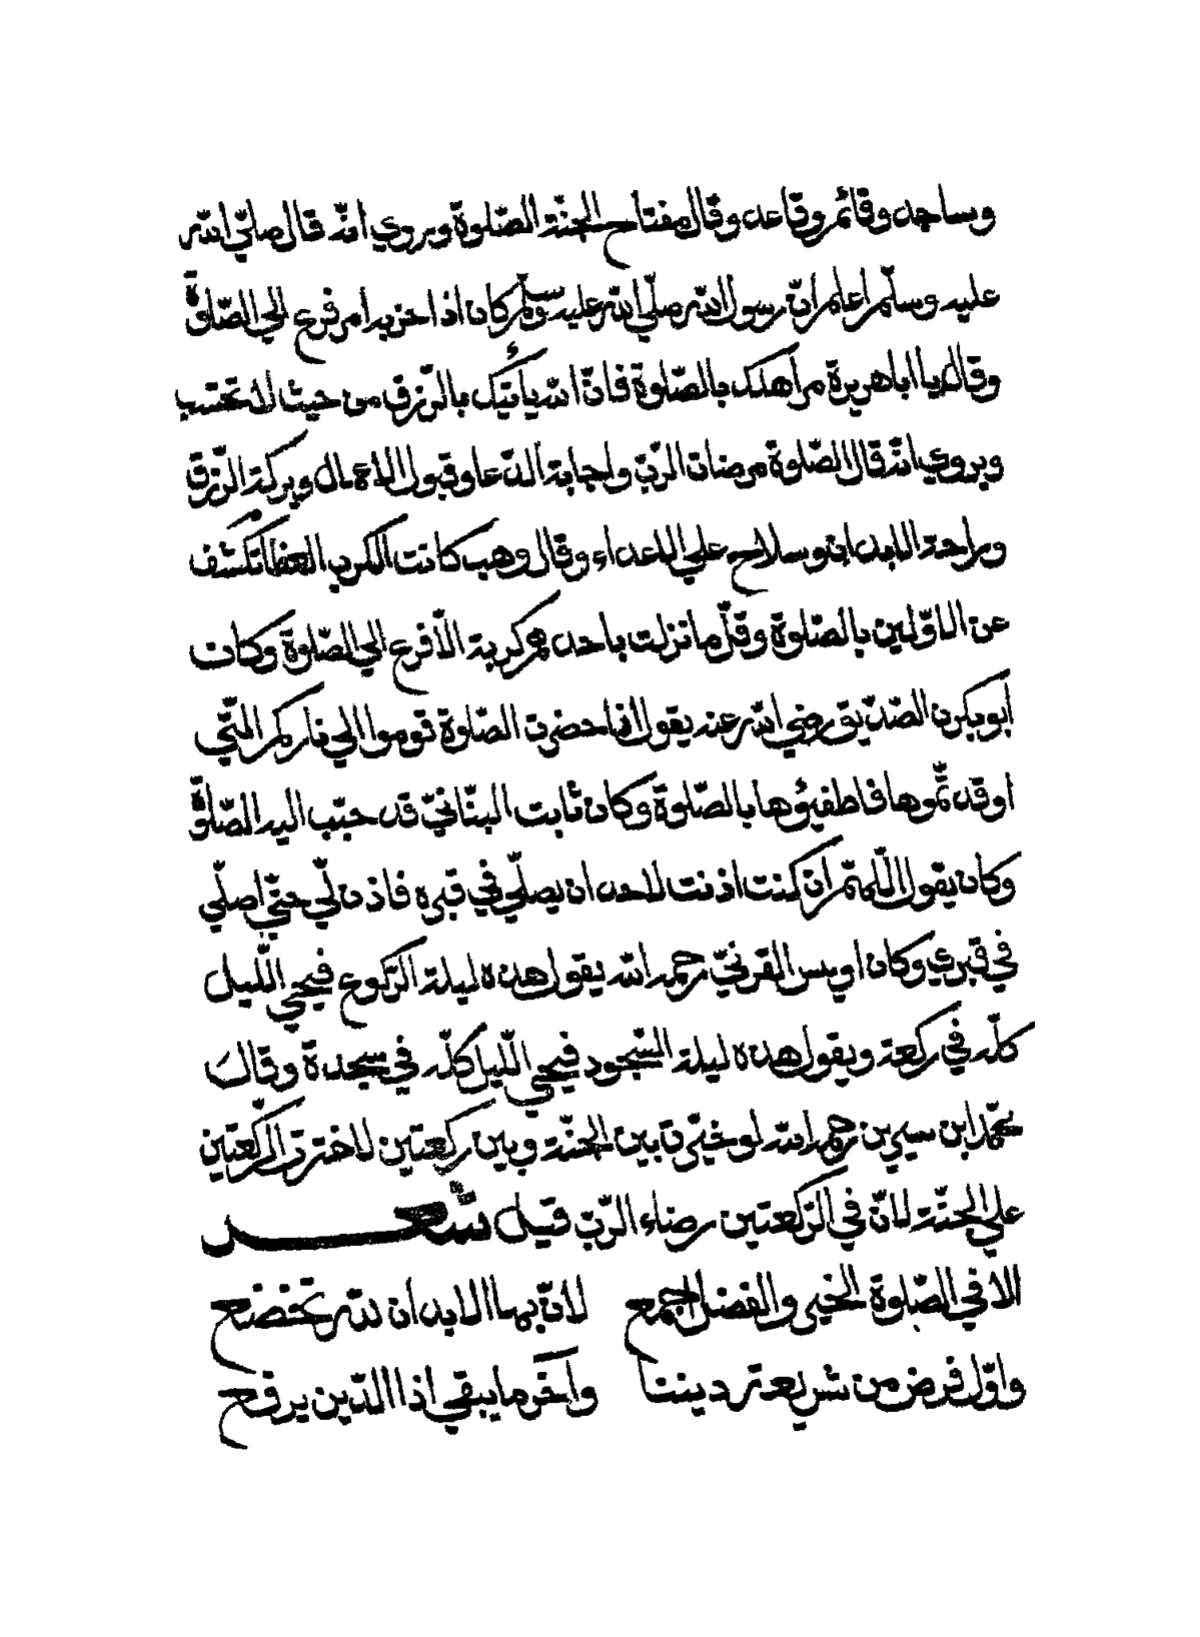 وساجد وقائم وقاعد وقال مفتاح الجنّة الصّلوة ويروي انّه قال صلّي الله
عليه وسلّم اعلم انّ رسول الله صلّي الله عليه وسلّم كان اذا حزبه امر فزع الي الصّلوة
وقال يا ابا هريرة مر اهلك بالصّلوة فانّ الله يأتيك بالرّزق من حيث لا تحتسب
ويروي انّه قال الصّلوة مرضات الرّبّ واجابة الدّعا وقبول الاعمال وبركة الرّزق
وراحة الابدان وسلاح علي الاعداء وقال وهب كانت الكرب العظا تكشف
عن الاوّلين بالصّلوة وقلّ ما نزلت باحدهم كربة الّا فزع الي الصّلوة وكان
أبو بكرن الصّدّيق رضي الله عنه يقول اذا حضرت الصّلوة قوموا الي ناركم الّتي
اوقدتّموها فاطفيؤها بالصّلوة وكان ثابت البنّانيّ قد حبّب اليه الصّلوة
وكان يقول اللّهمّ ان كنت اذنت لاحد ان يصلّي في قبره فاذن لّي حتّي اصلّي
في قبري وكان اويس القرنيّ رحمه الله يقول هذه ليلة الرّكوع فيحيي اللّيل
كلّه في ركعة ويقول هذه ليلة السّجود فيحيي اللّيل كلّه في سجدة وقال
محمّد ابن سيرين رحمه الله لو خيّرت بين الجنّة وبين ركعتين لاخترت الرّكعتين
علي الجنّة لانّ في الرّكعتين رضاء الرّبّ قيل شعر
الا في الصّلوة الخير والفضل اجمع لانّ بها الابدان لله تخضع
واوّل فرض من شريعة ديننا وآخر ما يبقي اذا الدّين يرفع